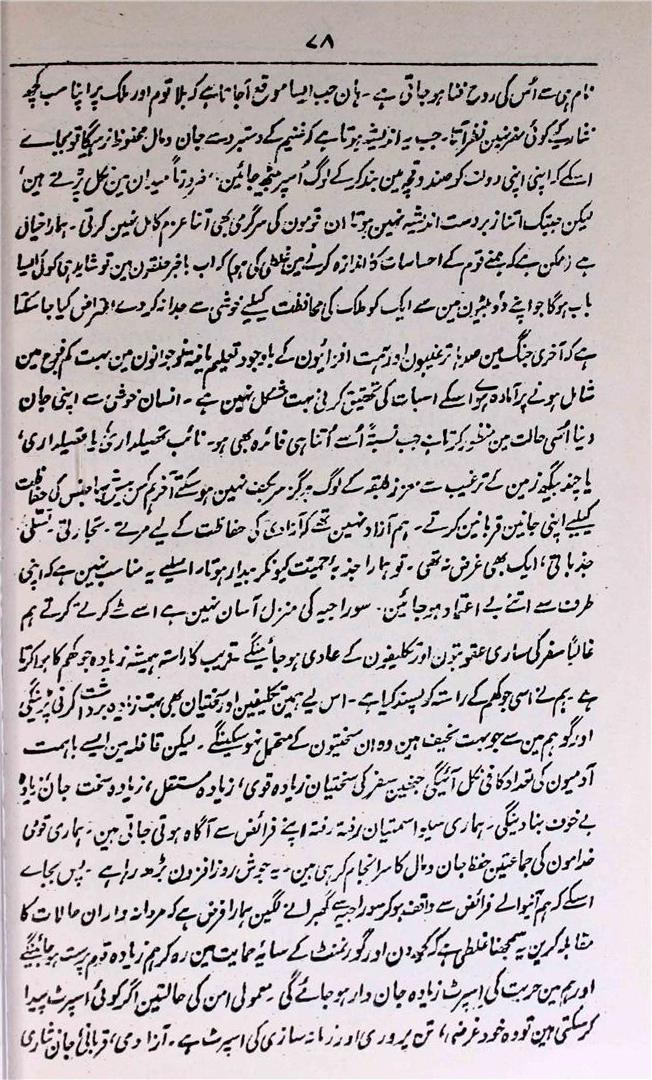 ۷۸
نام ہی سے اُس کی روح فنا ہو جاتی ہے ۔ ہان جب ایسا موقع آجاتا ہے کہ بلا قوم اور ملک پر اپنا سب کچھ
نثار کیے کوئی مفر نہین نظر آتا ۔ جب یہ اندیشہ ہوتا ہے کہ غنیم کے دستبرد سے جان و مال محفوظ نہ رہیگا تو بجاے
اسکے کہ اپنی اپنی دولت کو صندوقچہ مین بند کر کے لوگ اُسپر بیٹھ جائین، ضرورتاً میدان مین نکل پڑتے ہین ،
لیکن جبتک اتنا زبردست اندیشہ نہین ہوتا ان قومون کی سرگرمی بھی اتنا عزم کامل نہین کرتی ۔ ہمارا خیال
ہے (ممکن ہے کہ ہمنے قوم کے احساسات کا اندازہ کرنے مین غلطی کی ہو) کہ اب باخبر حلقون مین تو شاید ہی کوئی ایسا
باپ ہوگا جو اپنے دو بیٹیون مین سے ایک کو ملک کی محافظت کیلیے خوشی سے جدا نہ کر دے اعتراض کیا جا سکتا
ہے کہ آخری جنگ مین صدہا ترغیبون اور ہمت افزائیون کے باوجود تعلیم یافتہ نوجوانون مین بہت کم فوج مین
شامل ہونے پر آمادہ ہوے اسکے اسباب کی تحقیق کرنی بہت مشکل نہین ہے ۔ انسان خوشی سے اپنی جان
دینا اُسی حالت مین منظور کرتا ہے جب نسبتاً اُسے اُتنا ہی فائدہ بھی ہو ۔ نائب تحصیلداری، یا تحصیلداری ،
یا چند بیگھہ زمین کے ترغیب سے معزز طبقہ کے لوگ ہرگز سر بکف نہین ہو سکتے آخر ہم کس جنس کی حفاظت
کیلیے اپنی جانین قربانین کرتے ۔ ہم آزاد نہین تھے کہ آزادی کی حفاظت کے لیے مرتے ۔ تجارتی ۔ نسلی
جذباتی، ایک بھی غرض نہ تھی ۔ تو ہمارا جذبہ حمیت کیونکر بیدار ہوتا، اسلیے یہ مناسب نہین ہے کہ اپنی
طرف سے اتنے بے اعتماد ہو جائین ۔ سوراجیہ کی منزل آسان نہین ہے اسے طے کرتے کرتے ہم
غالباً سفر کی ساری عقوبتون اور تکلیفون کے عادی ہو جائینگے ۔ قریب کا راستہ ہمیشہ زیادہ جوکھم کا ہوا کرتا
ہے ۔ ہم نے اسی جوکھم کے راستہ کو پسند کیا ہے ۔ اس لیے ہمین تکلیفین اور سختیان بھی بہت زیادہ برداشت کرنی پڑینگی
اور گو ہم مین سے جو بہت نحیف ہین وہ ان سختیون کے متحمل نہو سکینگے ۔ لیکن قافلہ مین ایسے باہمت
آدمیون کی تعداد کافی نکل آئیگی جنہین سفر کی سختیان زیادہ قوی، زیادہ مستقل، زیادہ سخت جان، زیادہ
بے خوف بنا دینگی ۔ ہماری سیوا سمتیان رفتہ رفتہ اپنے فرائض سے آگاہ ہوتی جاتی ہین ۔ ہماری قومی
خدامون کی جماعتین حفظ جان و مال کا سرانجام کر رہی ہین ۔ یہ جوش روز افزون بڑھ رہا ہے ۔ پس بجاے
اسکے کہ ہم آنیوالے فرائض سے واقف ہو کر سوراجیہ سے گھبرانے لگین ہمارا فرض ہے کہ مردانہ وار ان حالات کا
مقابلہ کرین یہ سمجھنا غلطی ہے کہ کچھ دن اور گورنمنٹ کے سایۂ حمایت مین رہ کر ہم زیادہ قوم پرست ہو جائینگے
اور ہم مین حریت کی اسپرٹ زیادہ جان دار ہو جائے گی ۔ معمولی امن کی حالتین اگر کوئی اسپرٹ پیدا
کر سکتی ہین تو وہ خود غرضی، تن پروری اور زمانہ سازی کی اسپرٹ ہے ۔ آزادی، قربانی، جان نثاری